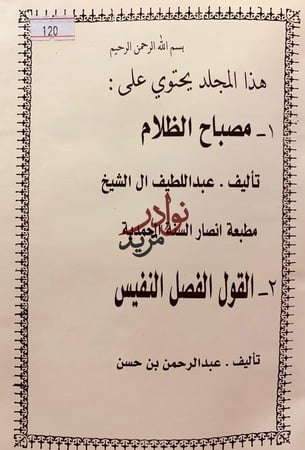 120
بسم الله الرحمن الرحيم
هذا المجلد يحتوي على :
١ـ مصباح الظلام
تأليف . عبداللطيف ال الشيخ
نوادر
مطبعة انصار السنة المحمدية
مزيد
٢ـ القول الفصل النفيس
تأليف . عبدالرحمن بن حسن